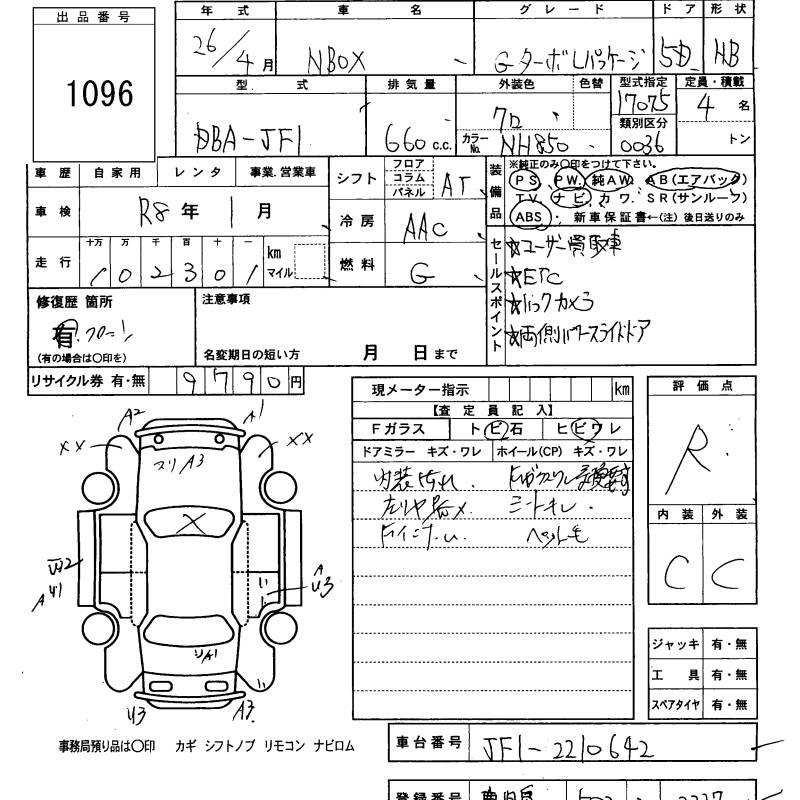 出品番号
1096
年式 車名 グレード ドア 形状
26/4月 NBOX Gターボ Lパッケージ 5D HB
型式 排気量 外装色 色替 型式指定 定員・積載
DBA-JF1 660 c.c. クロ 17075 4名
カラーNo. NH850 類別区分 0036 トン
車歴 自家用 レンタ 事業.営業車
シフト フロア コラム パネル AT
車検 R8年1月
冷房 AAC
走行 十万 万 千 百 十 一 km マイル
102301
燃料 G
装備品 ※純正のみ〇印をつけて下さい。
PS PW 純AW AB(エアバック)
TV ナビ カワ SR(サンルーフ)
ABS 新車保証書←(注)後日送りのみ
セールスポイント
☆ユーザー買取車
☆ETC
☆バックカメラ
☆両側パワースライドドア
修復歴 箇所
有
(有の場合は〇印を)
注意事項
名変期日の短い方 月 日まで
リサイクル券 有・無 9790円
現メーター指示 km
【査定員記入】
Fガラス トビ石 ヒビワレ
ドアミラー キズ・ワレ ホイール(CP) キズ・ワレ
内装汚れ
シートキレ
ペット毛
評価点
R
内装 外装
C C
ジャッキ 有・無
工具 有・無
スペアタイヤ 有・無
A2 A1
XX XX
スリ A3
X
U2
A
U1
A
U3
リA1
U3 A3
事務局預り品は〇印 カギ シフトノブ リモコン ナビロム
車台番号 JF1-2210642
登録番号